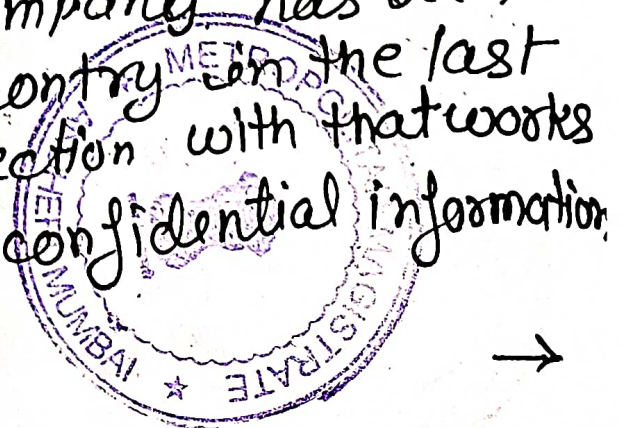 mpany has
ontry in the last
ection with that works
confidential information
→
METROPO
MAGISTRATE
MUMBAI